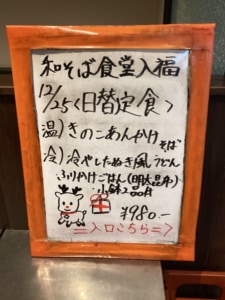 和そば食堂入福
12/25〈日替定食〉
温)きのこあんかけそば
冷)冷やしたぬき風うどん
ふりかけごはん(明太昆布)
小鉢2品付
¥980.-
⇒入口こちら⇒